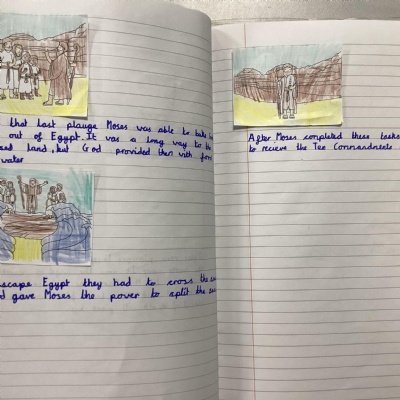 that last plauge Moses was able to take
out of Egypt. It was a long way to the
land, but God provided them with
water
scape Egypt they had to cross the
gave Moses the power to split the
After Moses completed these tasks
to recieve the Ten Commandments